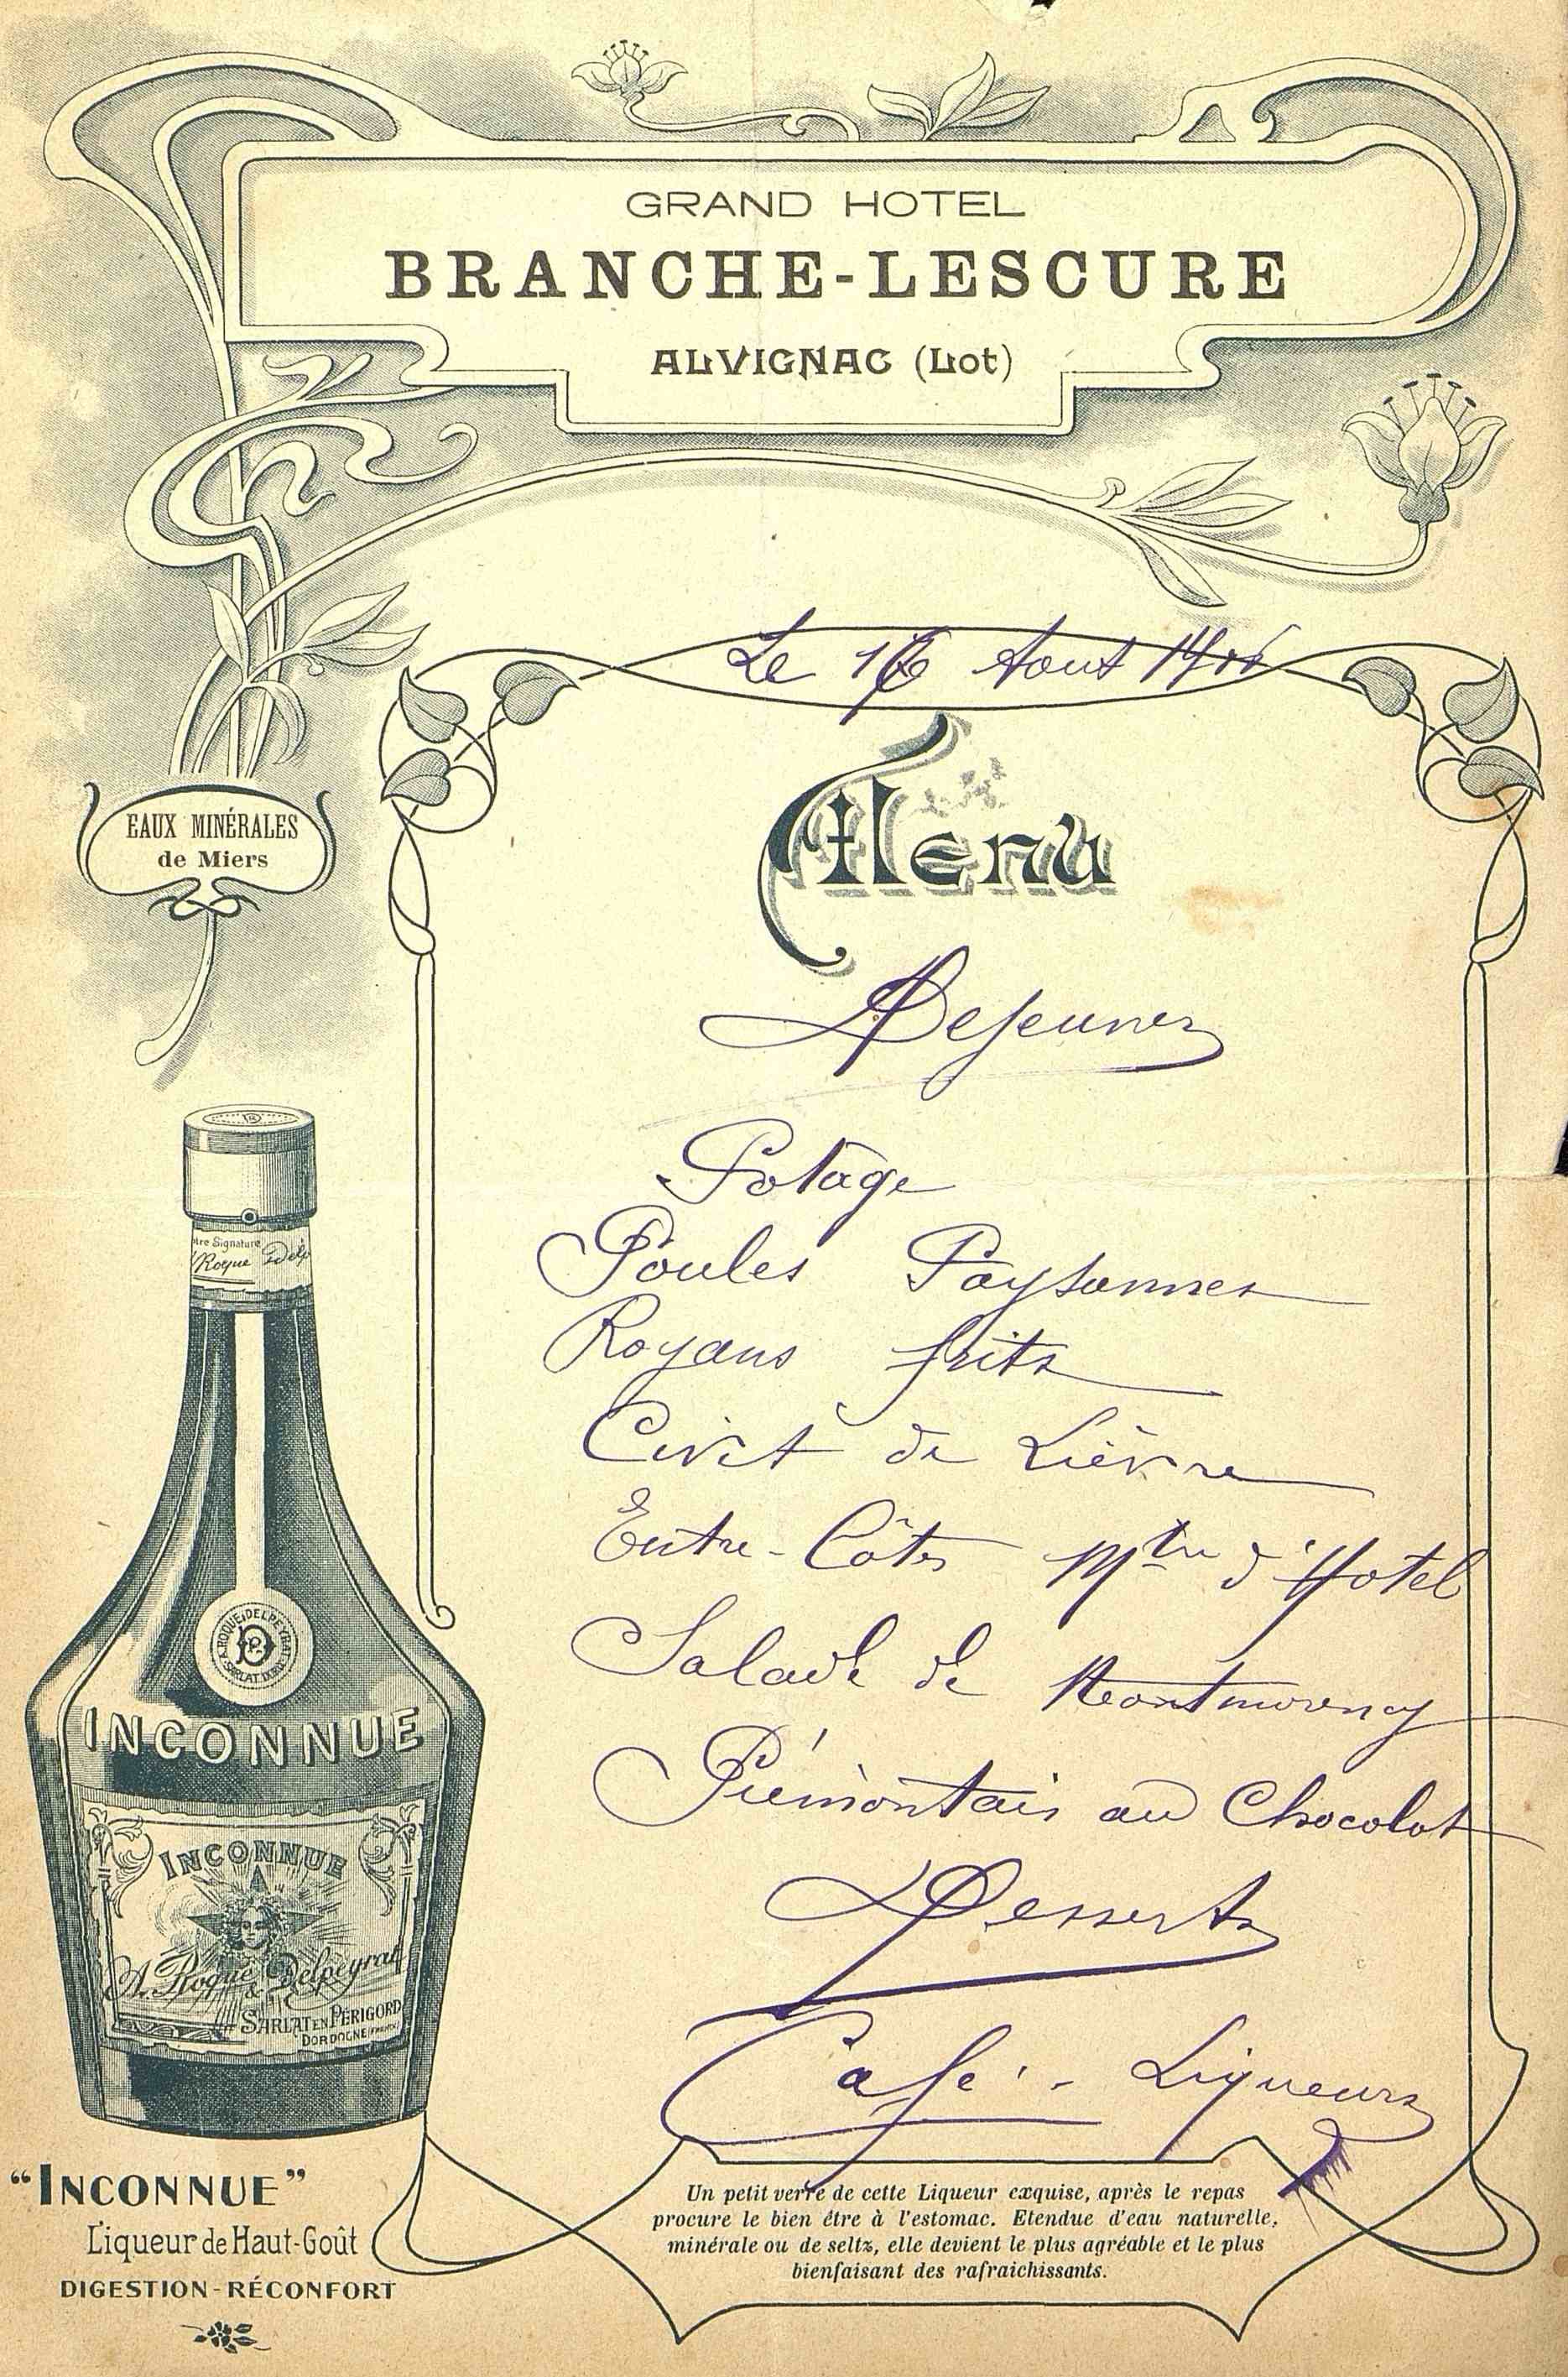 GRAND HOTEL
BRANCHE-LESCURE
ALVIGNAC (Lot)
Le 16 Aout
EAUX MINÉRALES
de Miers
Menu
Dejeuner
Potage
Poules Paysannes
Royans frits
Civet de Lièvre
Entre-Côtes Mtre d'Hotel
Salade de Montmorency
Piémontais au Chocolat
Desserts
Café - Liqueurs
tre Signature
Roque Delp
A. ROQUE & DELPEYRAT
SARLAT DORD
INCONNUE
INCONNUE
A. Roque & Delpeyrat
SARLAT EN PÉRIGORD
DORDOGNE
“INCONNUE”
Liqueur de Haut-Goût
DIGESTION-RÉCONFORT
Un petit verre de cette Liqueur exquise, après le repas
procure le bien être à l'estomac. Etendue d'eau naturelle,
minérale ou de seltz, elle devient le plus agréable et le plus
bienfaisant des rafraichissants.